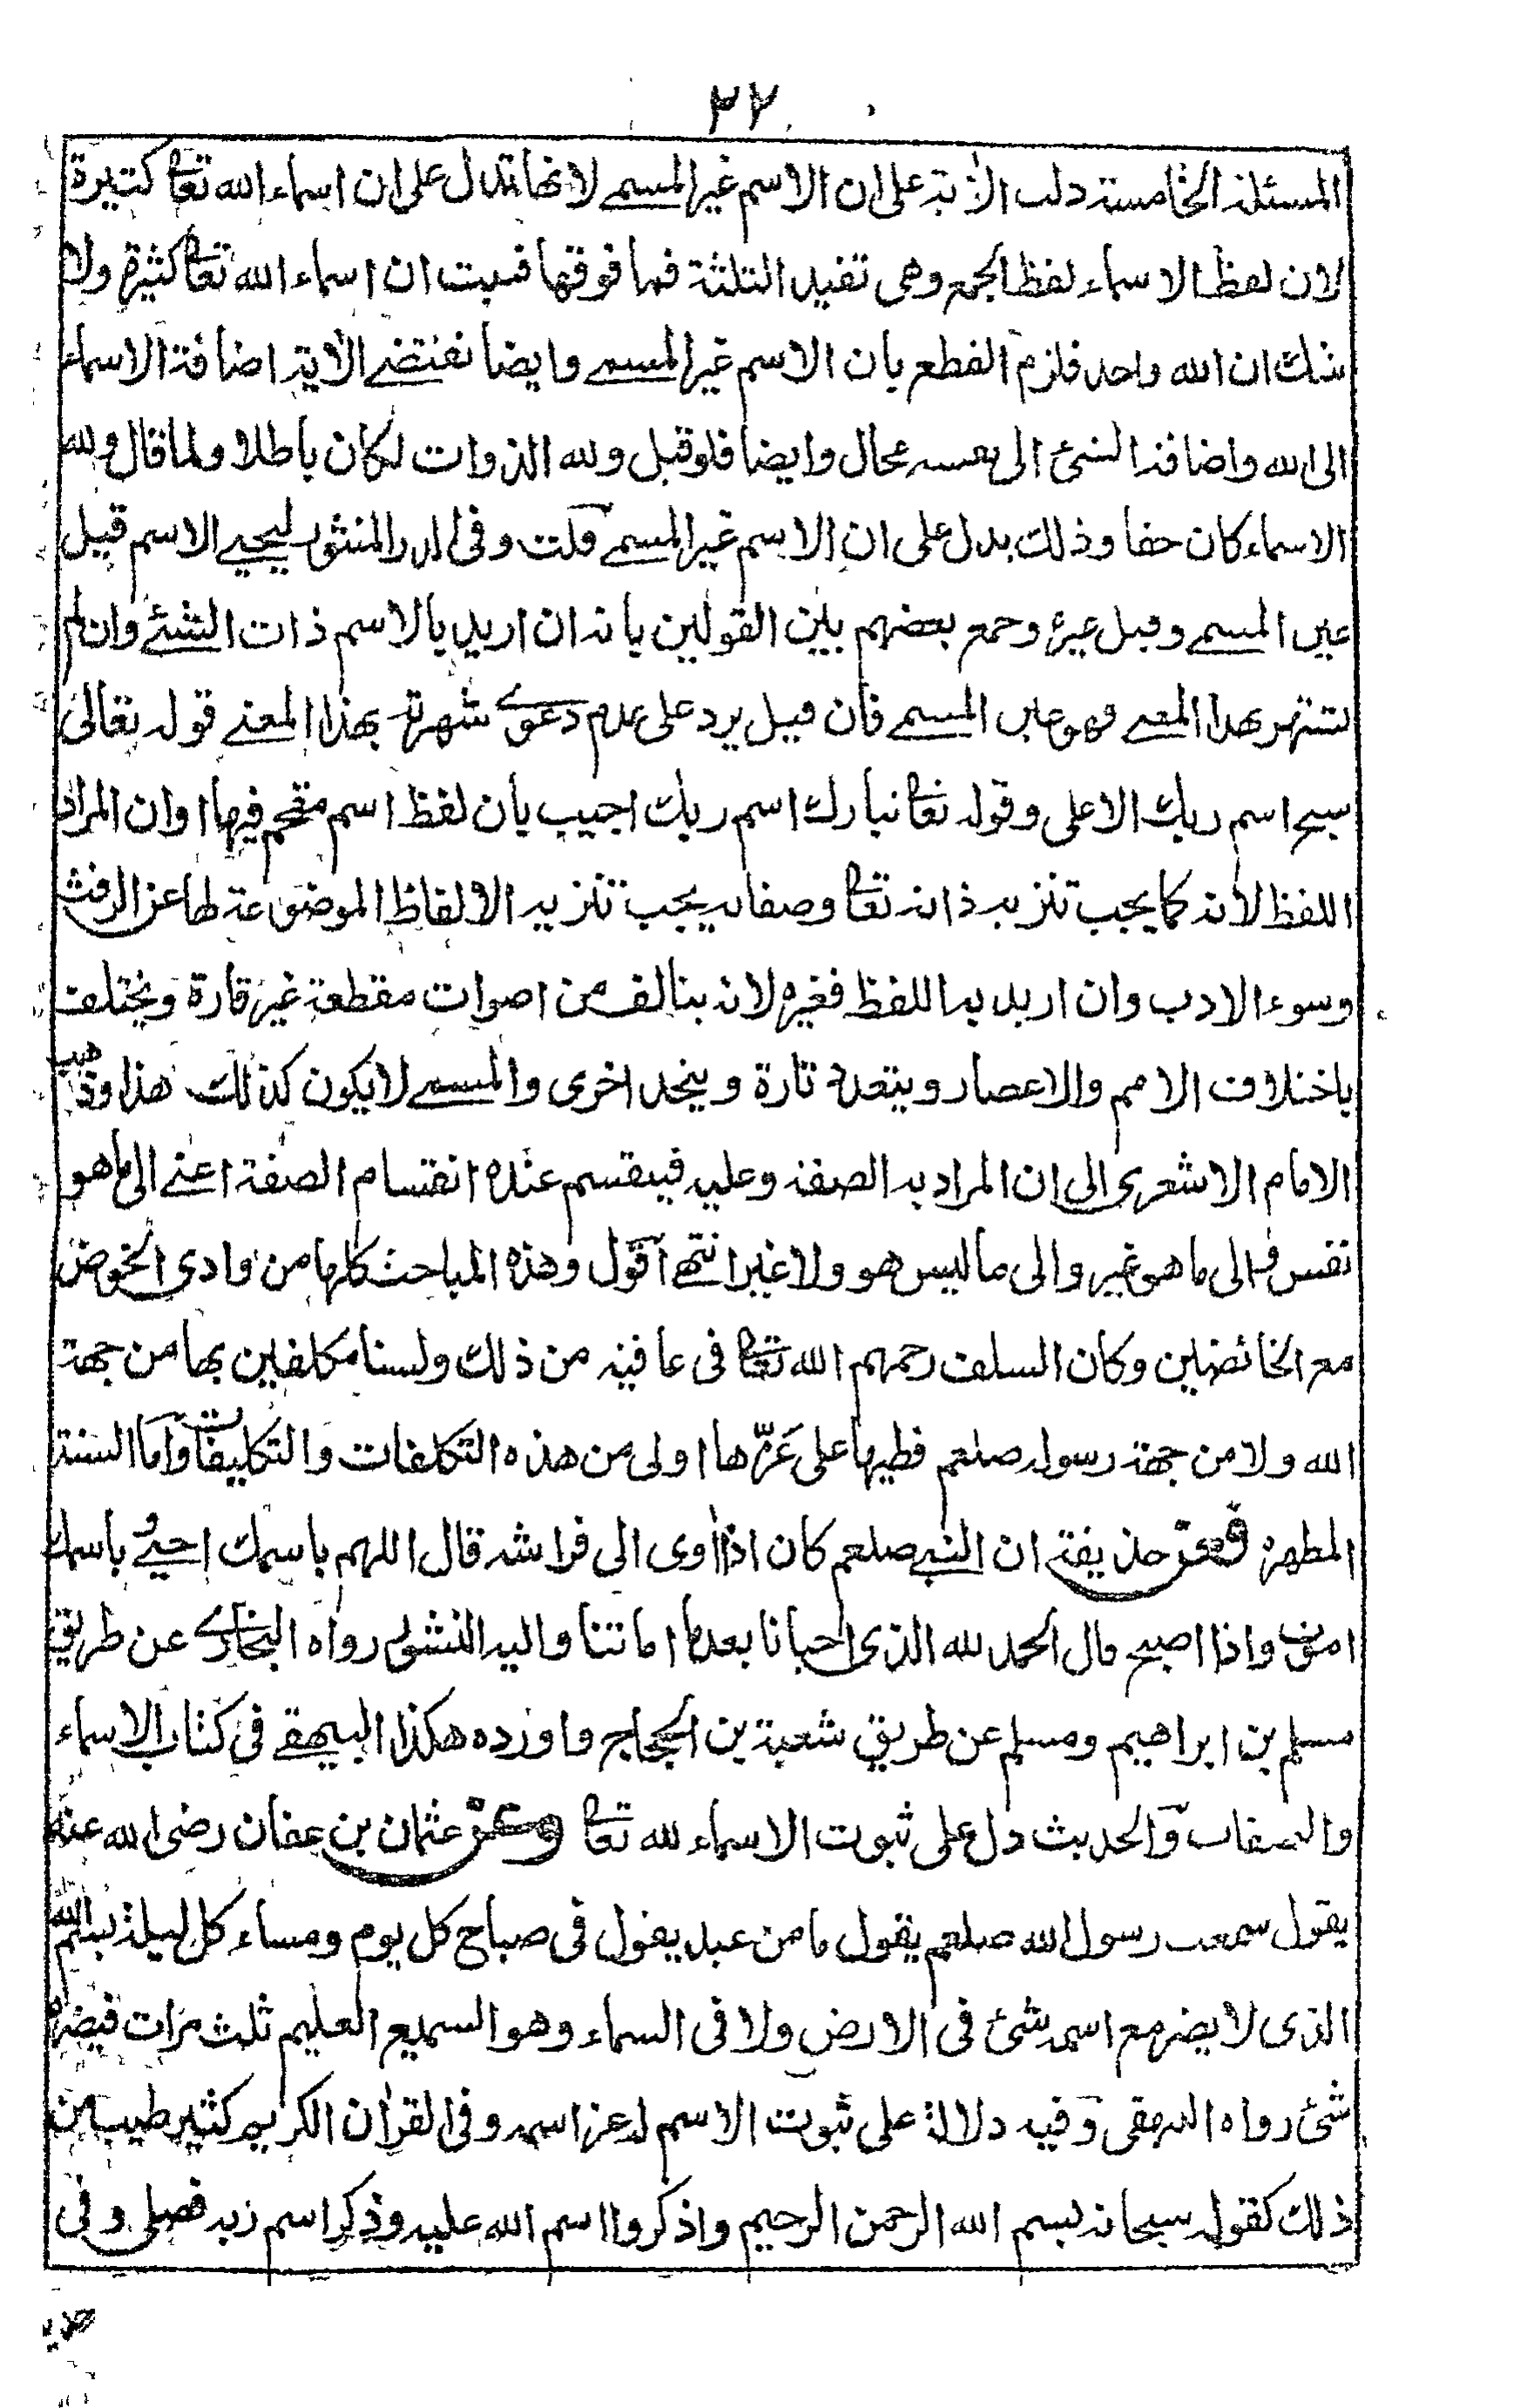 ٢٧
المسئلة الخامسة دلت الآية على ان الاسم غير المسمى لانها تدل على ان اسماء الله تعا كثيرة
لان لفظ الاسماء لفظ الجمع وهى تفيد الثلثة فما فوقها فثبت ان اسماء الله تعا كثيرة ولا
شك ان الله واحد فلزم القطع بان الاسم غير المسمى وايضا نقتضى الآية اضافة الاسماء
الى الله واضافة الشئ الى نفسه محال وايضا فلو قيل ولله الذوات لكان باطلا ولما قال ولله
الاسماء كان حقا وذلك يدل على ان الاسم غير المسمى قلت وفى الدر المنثور ليحيى الاسم قيل
عين المسمى وقيل غيره وجمع بعضهم بين القولين بانه ان اريد بالاسم ذات الشئ وان لم
يشتهر بهذا المعنى فهو عين المسمى فان قيل يرد على عدم دعوى شهرته بهذا المعنى قوله تعالى
سبح اسم ربك الاعلى وقوله تعا تبارك اسم ربك اجيب بان لفظ اسم مقحم فيها اوان المراد
اللفظ لانه كما يجب تنزيه ذاته تعا وصفاته يجب تنزيه الالفاظ الموضوعة لها عن الرفث
وسوء الادب وان اريد به اللفظ فغيره لانه يتالف من اصوات مقطعة غير قارة ويختلف
باختلاف الامم والاعصار ويتعدد تارة ويتحد اخرى والمسمى لا يكون كذلك هذا وذهب
الامام الاشعرى الى ان المراد به الصفة وعليه فينقسم عنده انقسام الصفة اعنى الى ما هو
نفس والى ما هو غير والى ما ليس هو ولا غير انتهى اقول وهذه المباحث كلها من وادى الخوض
مع الخائضين وكان السلف رحمهم الله تعا فى عافية من ذلك ولسنا مكلفين بها من جهة
الله ولا من جهة رسوله صلعم فطيها على غرّها اولى من هذه التكلفات والتكليفات واما السنة
المطهرة فعن حذيفة ان النبى صلعم كان اذا اوى الى فراشه قال اللهم باسمك احيى باسمك
اموت واذا اصبح قال الحمد لله الذى احيانا بعدما اماتنا واليه النشور رواه البخارى عن طريق
مسلم بن ابراهيم ومسلم عن طريق شعبة بن الحجاج واورده هكذا البيهقى فى كتاب الاسماء
والصفات والحديث دل على ثبوت الاسماء لله تعا وعن عثمان بن عفان رضى الله عنه
يقول سمعت رسول الله صلعم يقول ما من عبد يقول فى صباح كل يوم ومساء كل ليلة بسم الله
الذى لا يضر مع اسمه شئ فى الارض ولا فى السماء وهو السميع العليم ثلث مرات فيضره
شئ رواه البيهقى وفيه دلالة على ثبوت الاسم له عز اسمه وفى القرآن الكريم كثير طيب من
ذلك كقوله سبحانه بسم الله الرحمن الرحيم واذكروا اسم الله عليه وذكر اسم ربه فصلى وفى